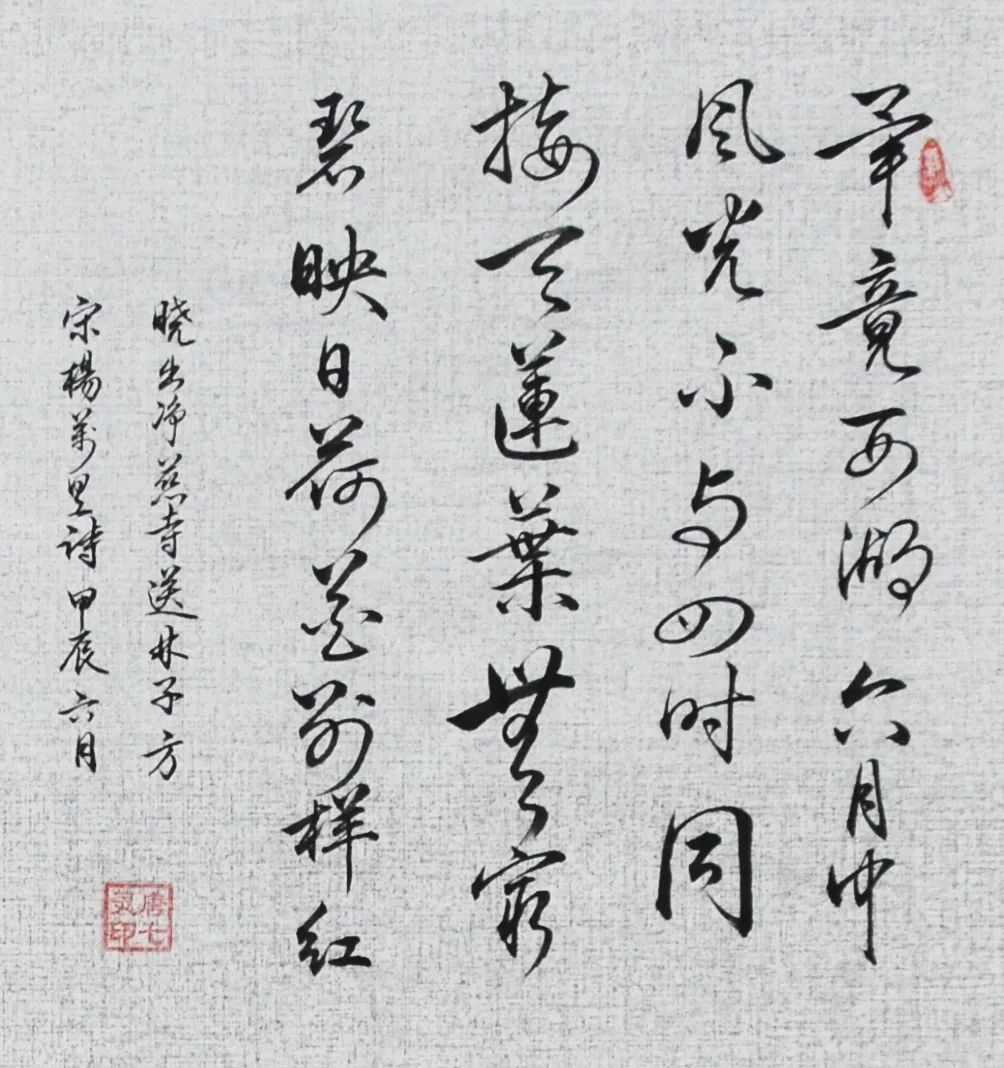 毕竟西湖六月中
风光不与四时同
接天蓮葉無穷
碧映日荷花别样红
晓出净慈寺送林子方
宋楊萬里诗甲辰六月